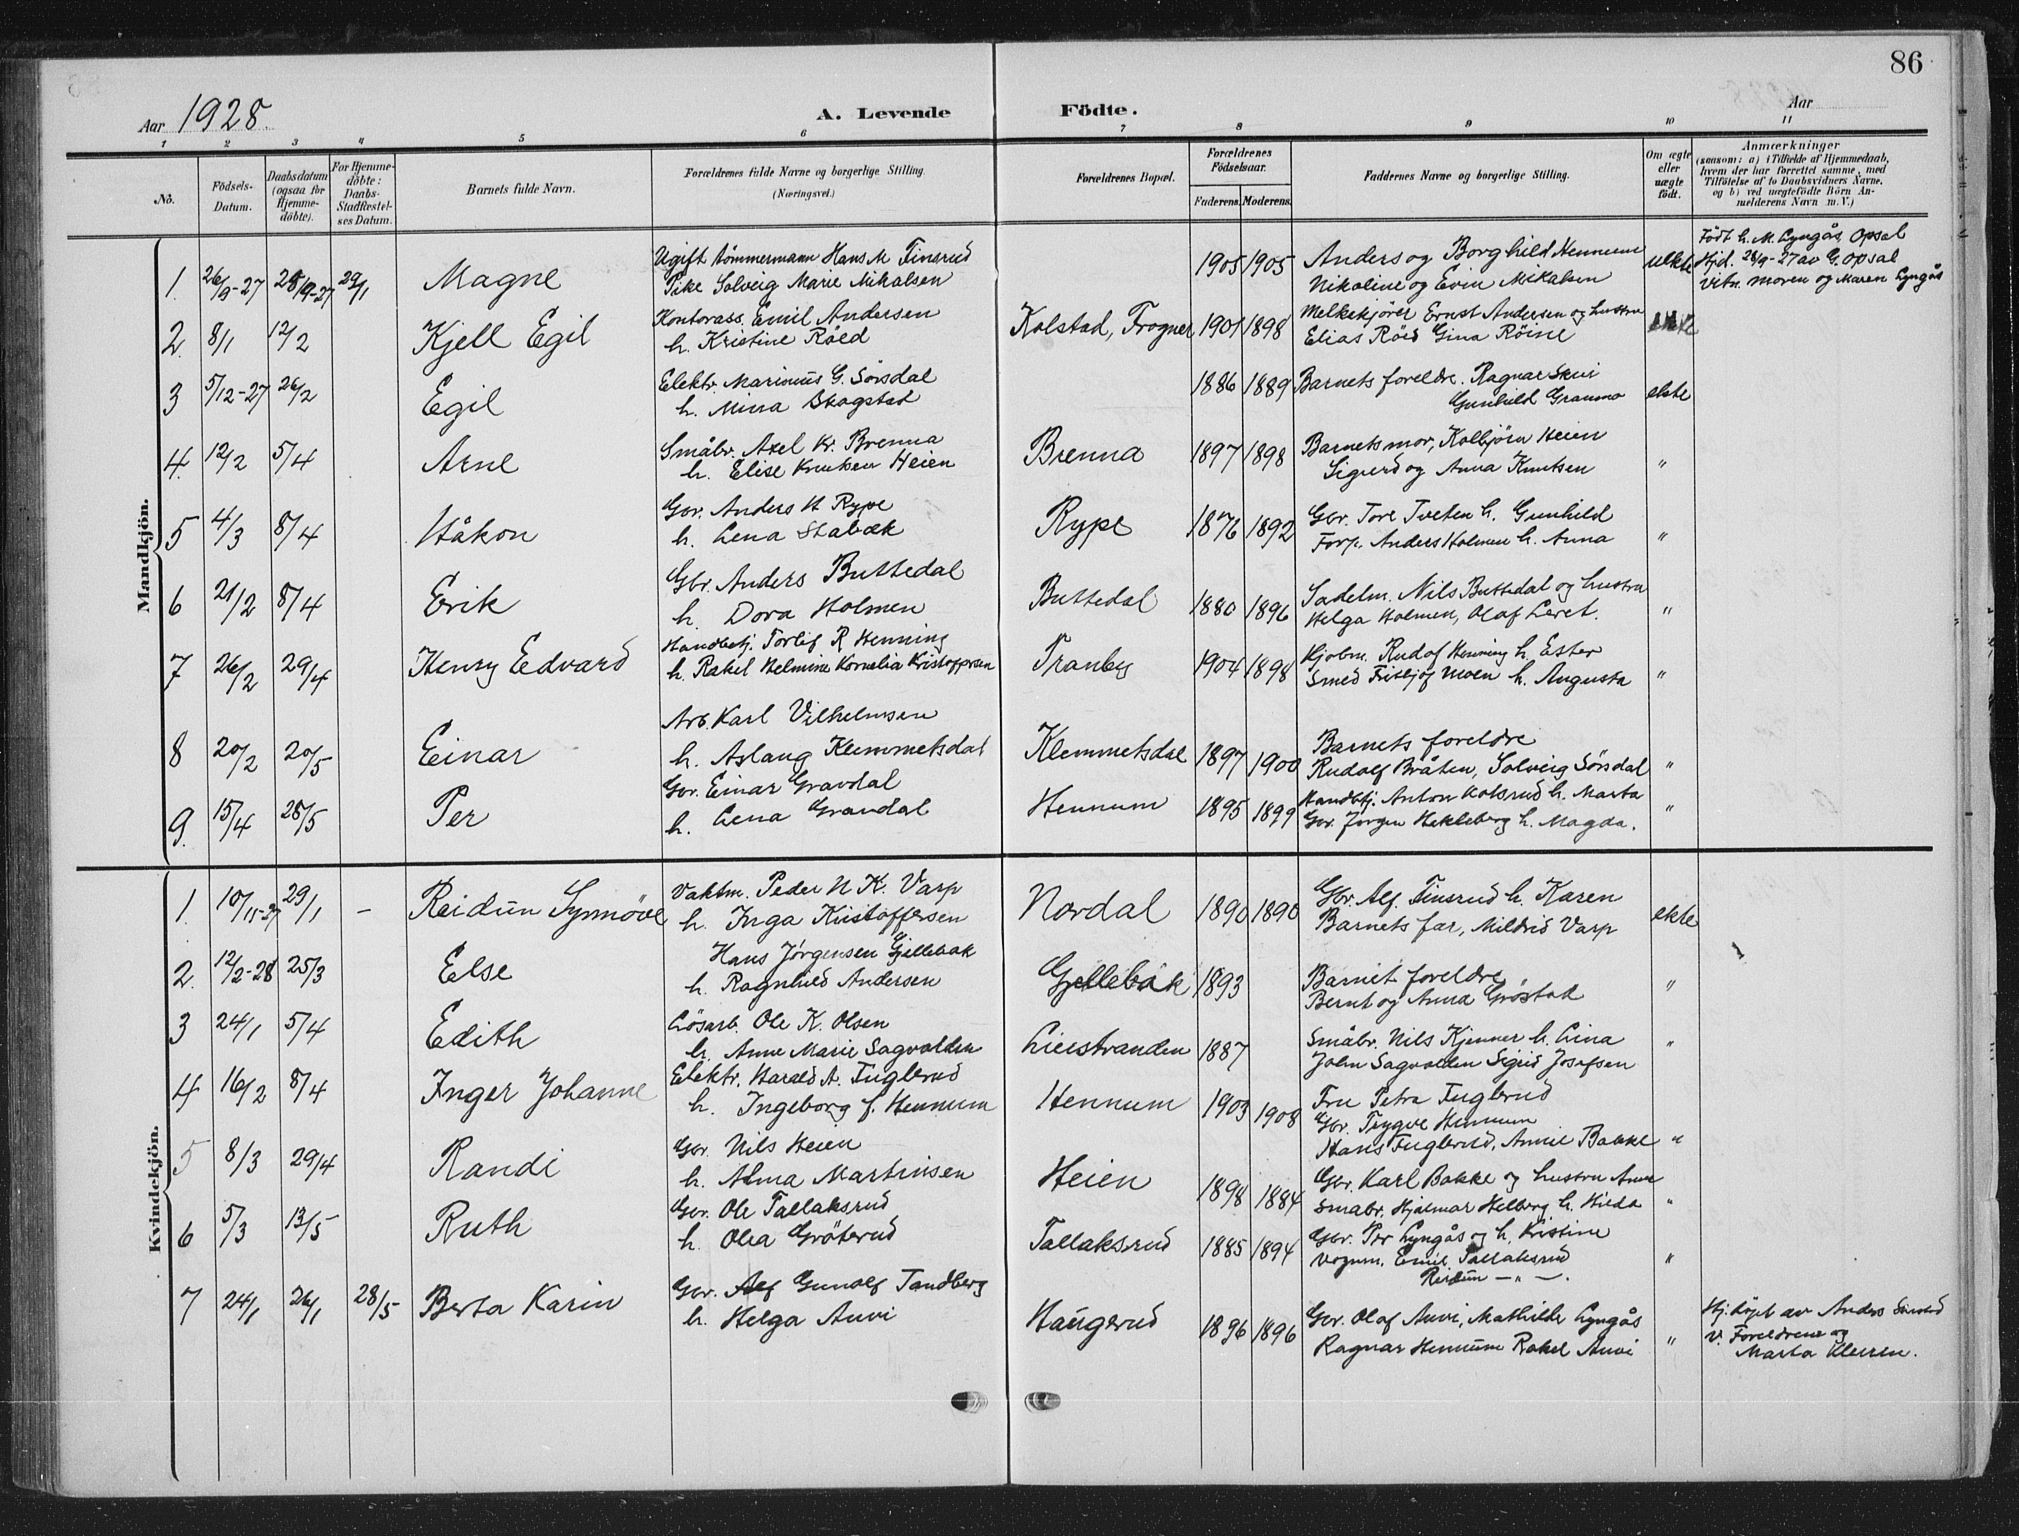 86
Aar 1928. A. Levende Födte. Aar
1 2 3 4 5 6 7 8 9 10 11
No. Födsels-Datum. Daabsdatum (ogsaa for Hjemme-döbte). For Hjemme-döbte: Daabs-Stadfestel-ses Datum. Barnets fulde Navn. Forældrenes fulde Navne og borgerlige Stilling. (Næringsvei.) Forældrenes Bopæl. Forældrenes Födselsaar. Faderens. Moderens. Faddernes Navne og borgerlige Stilling. Om ægte eller uægte födt. Anmærkninger (saasom: a) i Tilfælde af Hjemmedaab, hvem der har forrettet samme, med Tilföielse af to Daabsvidners Navne, og b) ved uægtefödte Börn An-melderens Navn m. V.)
Mandkjön.
Ugift tömmermann Hans M Finsrud Anders og Borghild Hennum Födt h. M. Lyngås, Opsal
1. 26/9-27 28/9-27 29/1 Magne Pike Solveig Marie Mikalsen 1905 1905 Nikoline og Evin Mikalsen uekte Hjd. 28/9-27 av G. Opsal
Vitn. moren og Maren Lyngås
Kontorass. Emil Andersen Melkekjörer Ernst Andersen og hustru
2. 8/1 12/2 Kjell Egil h. Kristine Röed Kolstad, Frogner 1901 1898 Elias Röed Gina Röine ekte
Elektr. Marinius G. Sörsdal Barnets foreldre. Ragnar Skui
3 5/12-27 26/2 Egil h. Mina Skogstad 1886 1889 Gunhild Granmo ekte
Småbr. Axel Kr. Brenna Barnets mor, Kolbjörn Heien
4. 12/2 5/4 Arne h. Elise Knutsen Heien Brenna 1897 1898 Sigurd og Anna Knutsen "
Gbr. Anders H Rype Gbr. Tore Tveten h. Gunhild
5 4/3 8/4 Håkon h. Lena Stabæk Rype 1876 1892 Forp. Anders Holmen h. Anna "
Gbr. Anders Buttedal Sadelm. Nils Buttedal og hustru
6 21/2 8/4 Erik h. Dora Holmen Buttedal 1880 1896 Helga Holmen, Olaf Leret. "
Handbetj. Torlif R Henning Hjolm. Rudof Henning h. Ester
7 26/2 29/4 Henry Edvard h. Rakel Helmine Kornelia Kristoffersen Tranby 1904 1898 Smed Fritjof Moen h. Augusta "
Arb. Karl Vilhelmsen Barnets foreldre
8 20/2 20/5 Einar h. Aslaug Klemmetsdal Klemmetsdal 1897 1900 Rudolf Bråten, Solveig Sörsdal "
Gbr. Einar Gravdal Handbtj. Anton Kolsrud h. Marta
9. 15/4 28/5 Per h. Lena Gravdal Hennum 1895 1899 Gbr. Jörgen Hekleberg h. Magda. "
Kvindekjön.
Vaktm. Peder N K. Varp Gbr. Alf. Finsrud h. Karen
1. 10/11-27 29/1 - Reidun Synnöve h. Inga Kristoffersen Nordal 1890 1890 Barnets far, Mildrid Varp ekte
Hans Jörgensen Gjellebæk Barnets foreldre
2. 12/2-28 25/3 Else h. Ragnhild Andersen Gjellebæk 1893 Bernt og Anna Gröstad "
Lösarb. Ole K. Olsen Småbr. Nils Kjenner h. Lina
3 24/1 5/4 Edith h. Anne Marie Sagvolden Lierstranden 1887 John Sagvolden Sigrid Josefsen "
Elektr. Harald A. Fuglerud Fru Petra Fuglerud
4 16/2 8/4 Inger Johanne h. Ingeborg f. Hennum Hennum 1903 1908 Gbr. Trygve Hennum
Hans Fuglerud, Annie Bakke "
Gbr. Nils Heien Gbr. Karl Bakke og hustru Anne
5 8/3 29/4 Randi h. Alma Martinsen Heien 1898 1884 Småbr. Hjalmar Helberg h. Hilda "
Gbr. Ole Tallaksrud Gbr. Per Lyngås og h. Kristine
6 5/3 13/5 Ruth h. Olea Gröterud Tallaksrud 1885 1894 Vognm. Emil Tallaksrud "
Reidun — " —.
Gbr. Alf Gunolf Tandberg Gbr. Olaf Auvi, Mathilde Lyngås Hj. döpt av Anders
7 24/1 26/1 28/5 Berta Karin h. Helga Auvi Haugerud 1896 1896 Ragnar Hennum Rakel Auvi " V. Foreldrene og
Marta